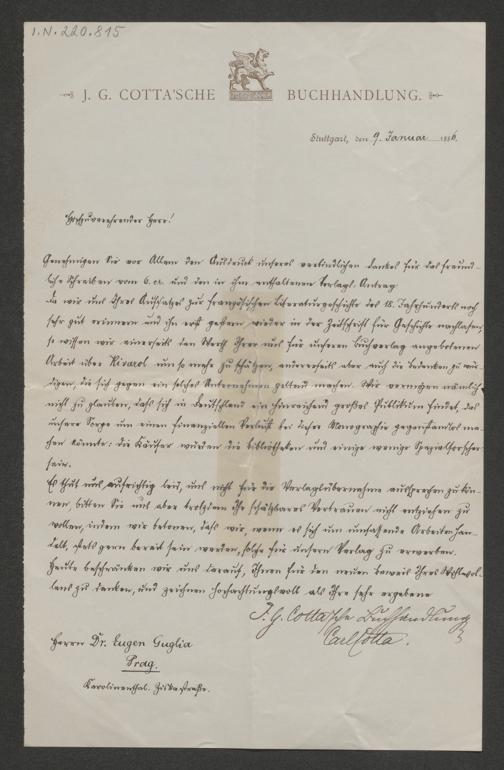 I.N. 220.815
J. G. COTTA'SCHE BUCHHANDLUNG.
Stuttgart, den 9. Januar 1886.
Hochzuverehrender Herr!
Genehmigen Sie vor Allem den Ausdruck unseres verbindlichen Dankes für das freund-
liche Schreiben vom 6. cr. und den in ihm enthaltenen Verlags-Antrag.
Da wir uns Ihres Aufsatzes zur französischen Literaturgeschichte des 18. Jahrhunderts noch
sehr gut erinnern und ihn erst gestern wieder in der Zeitschrift für Geschichte nachlasen,
so wissen wir einerseits den Werth Ihrer uns für unseren Buchverlag angebotenen
Arbeit über Rivarol um so mehr zu schätzen, andererseits aber auch die Bedenken zu wür-
digen, die sich gegen ein solches Unternehmen geltend machen. Wir vermögen nämlich
nicht zu glauben, daß sich in Deutschland ein hinreichend großes Publikum findet, das
unsere Sorge um einen finanziellen Verlust bei dieser Monographie gegenstandlos ma-
chen könnte: die Käufer würden die Bibliotheken und einige wenige Spezialforscher
sein.
Es thut uns aufrichtig leid, uns nicht für die Verlagsübernahme aussprechen zu kön-
nen, bitten Sie uns aber trotzdem Ihr schätzbares Vertrauen nicht entziehen zu
wollen, indem wir betonen, daß wir, wenn es sich um umfassende Arbeiten han-
delt, stets gern bereit sein werden, solche für unsern Verlag zu erwerben.
Heute beschränken wir uns darauf, Ihnen für den neuen Beweis Ihres Wohlwol-
lens zu danken, und zeichnen hochachtungsvoll als Ihre sehr ergebene
J. G. Cotta'sche Buchhandlung
Carl Cotta.
Herrn Dr. Eugen Guglia
Prag.
Karolinenthal. Ziskastraße.